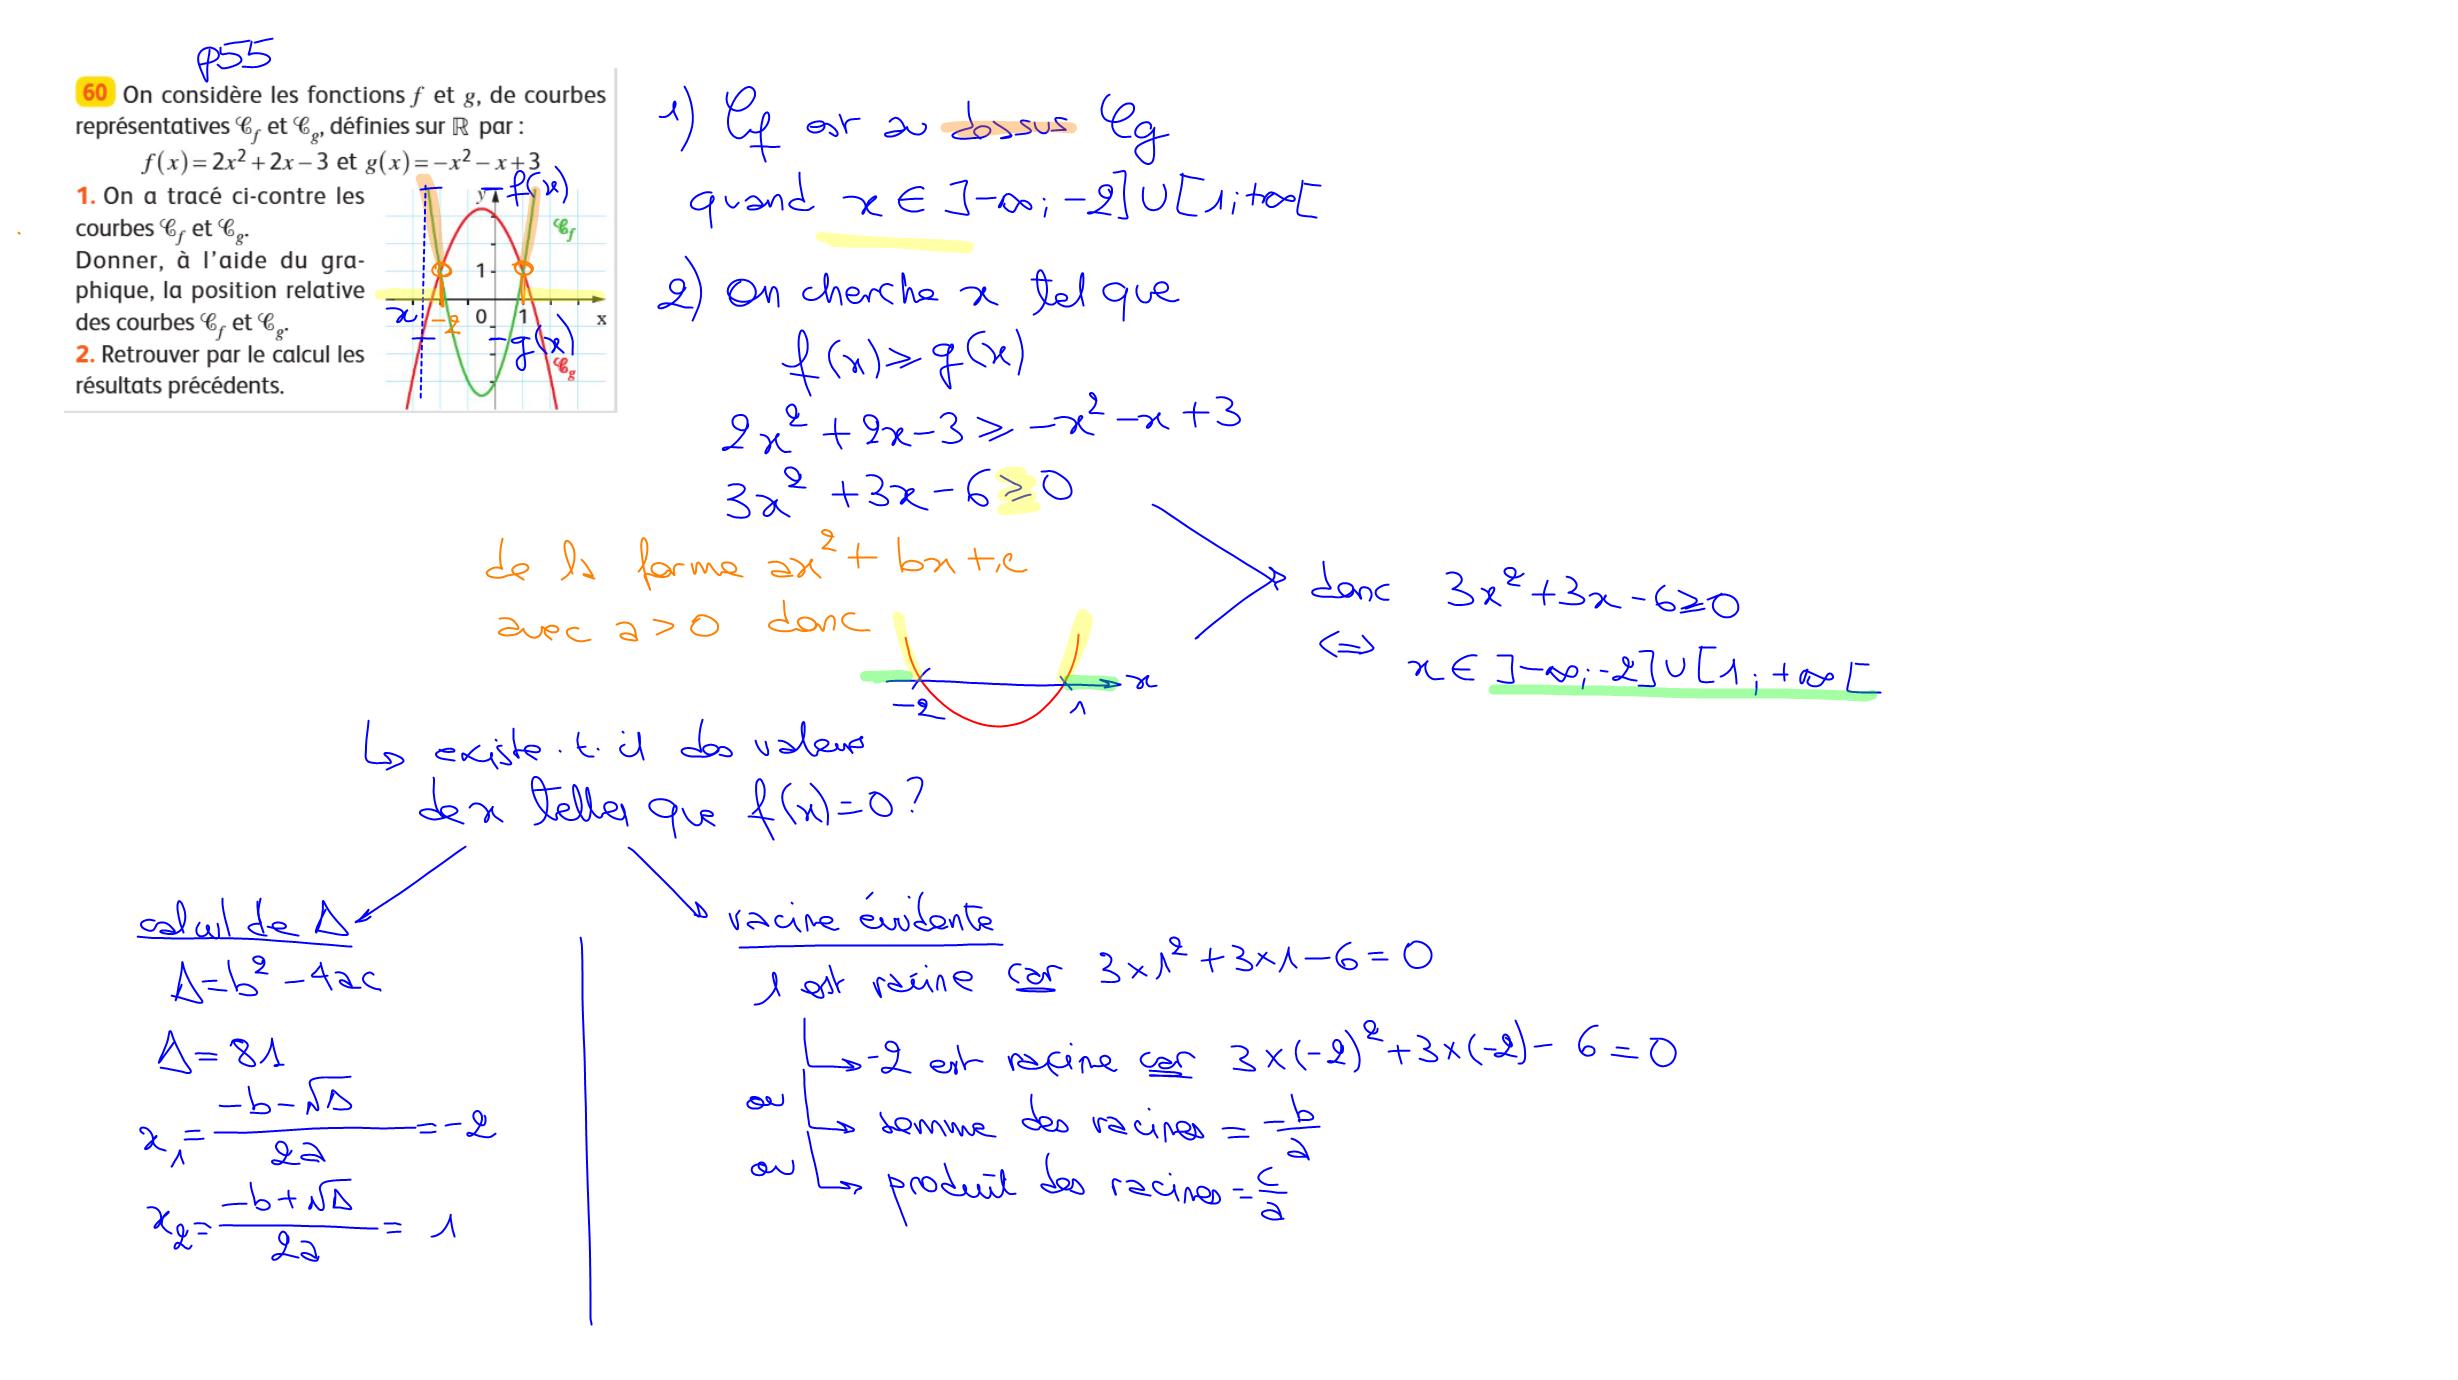 p55
60 On considère les fonctions f et g, de courbes
représentatives 𝒞f et 𝒞g, définies sur ℝ par :
f(x) = 2x² + 2x – 3 et g(x) = –x² – x + 3
1. On a tracé ci-contre les
courbes 𝒞f et 𝒞g.
Donner, à l'aide du gra-
phique, la position relative
des courbes 𝒞f et 𝒞g.
2. Retrouver par le calcul les
résultats précédents.
y f(x)
𝒞f
1
x -2 0 1 x
g(x)
𝒞g
1) 𝒞f est au dessus 𝒞g
quand x ∈ ]-∞; -2] ∪ [1; +∞[
2) On cherche x tel que
f(x) ⩾ g(x)
2x² + 2x - 3 ⩾ -x² - x + 3
3x² + 3x - 6 ≥ 0
de la forme ax² + bx + c
avec a > 0 donc
-2 1 x
donc 3x² + 3x - 6 ≥ 0
⟺
x ∈ ]-∞; -2] ∪ [1; +∞[
↳ existe.t.il des valeurs
de x telles que f(x) = 0 ?
calcul de Δ
Δ = b² - 4ac
Δ = 81
x₁ = (-b - √Δ)/2a = -2
x₂ = (-b + √Δ)/2a = 1
racine évidente
1 est racine car 3×1² + 3×1 - 6 = 0
→ -2 est racine car 3×(-2)² + 3×(-2) - 6 = 0
ou → somme des racines = -b/a
ou → produit des racines = c/a